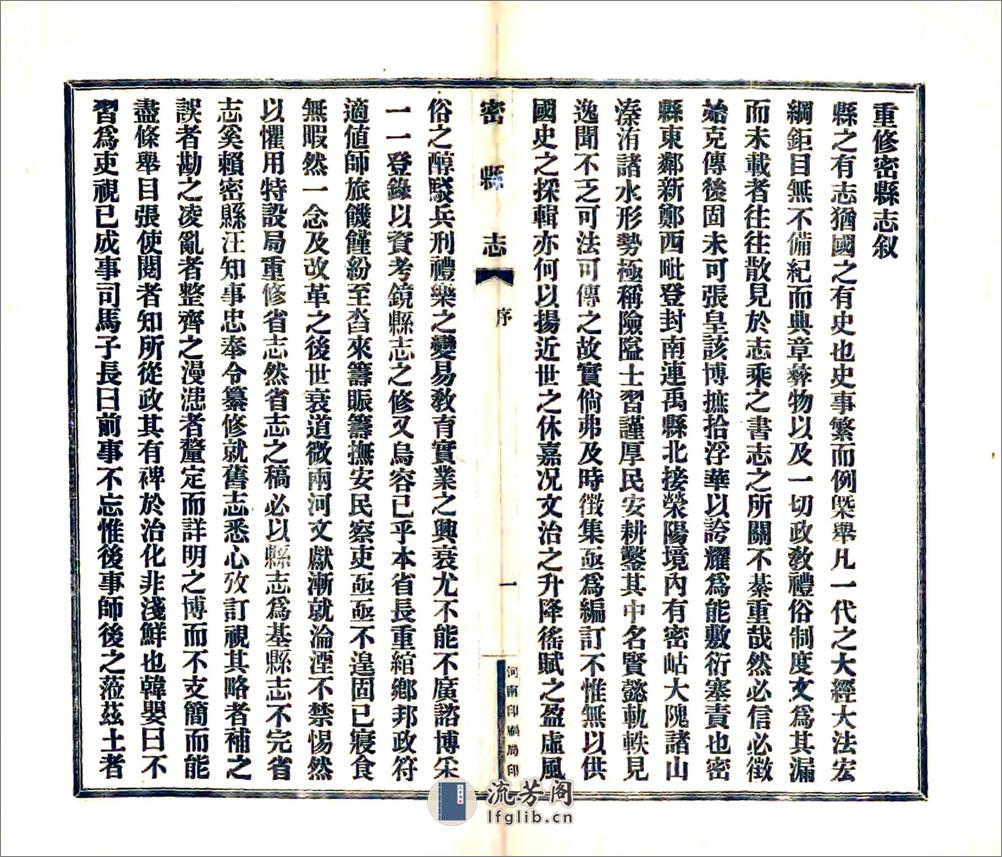 重修密縣志叙
縣之有志猶國之有史也史事繁而例槩舉凡一代之大經大法宏
綱鉅目無不備紀而典章彝物以及一切政敎禮俗制度文爲其漏
而未載者往往散見於志乘之書志之所關不綦重哉然必信必徵
始克傳後固未可張皇該博摭拾浮華以誇耀爲能敷衍塞責也密
縣東鄰新鄭西毗登封南連禹縣北接滎陽境內有密岵大隗諸山
溱洧諸水形勢極稱險隘士習謹厚民安耕鑿其中名賢懿軌軼見
逸聞不乏可法可傳之故實倘弗及時徵集亟爲編訂不惟無以供
國史之採輯亦何以揚近世之休嘉况文治之升降徭賦之盈虛風
密縣志
序
一
河南印刷局印
俗之醇駁兵刑禮樂之變易敎育實業之興衰尤不能不廣諮博采
一一登錄以資考鏡縣志之修又烏容已乎本省長重綰鄉邦政符
適値師旅饑饉紛至沓來籌賑籌撫安民察吏亟亟不遑固已寢食
無暇然一念及改革之後世衰道微兩河文獻漸就淪湮不禁惕然
以懼用特設局重修省志然省志之稿必以縣志爲基縣志不完省
志奚賴密縣汪知事忠奉令纂修就舊志悉心攷訂視其略者補之
誤者勘之凌亂者整齊之漫漶者釐定而詳明之博而不支簡而能
盡條舉目張使閱者知所從政其有裨於治化非淺鮮也韓嬰曰不
習爲吏視已成事司馬子長曰前事不忘惟後事師後之蒞茲土者
流芳阁
lfglib.cn